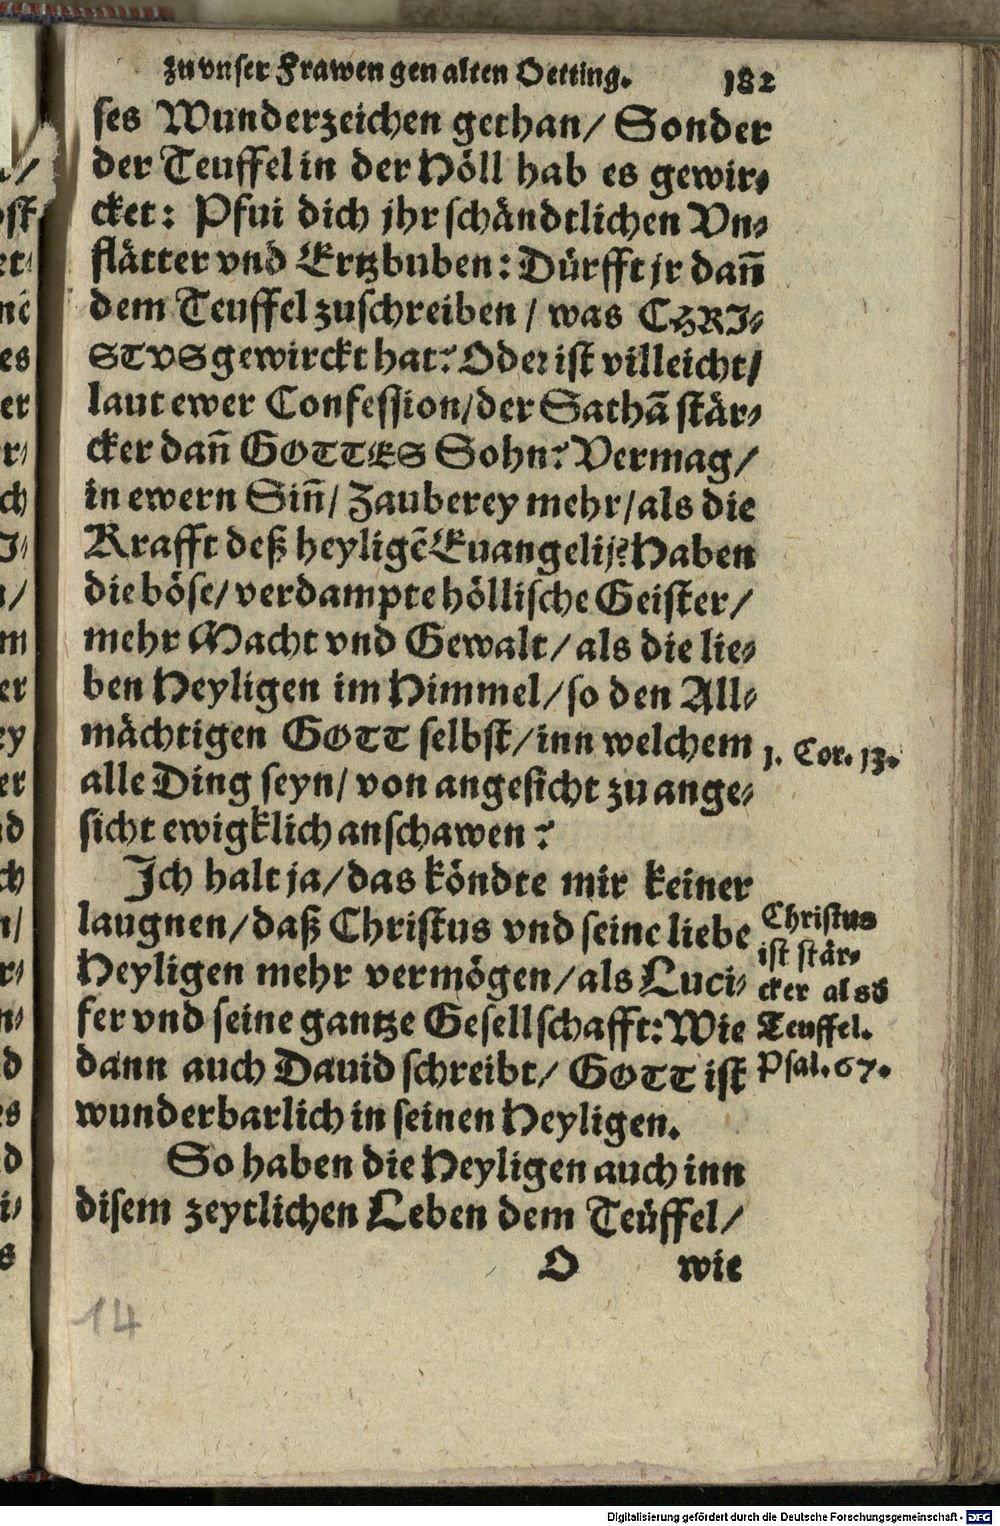 zu vnser Frawen gen alten Oetting. 182
ses Wunderzeichen gethan/ Sonder
der Teuffel in der Höll hab es gewir⸗
cket: Pfui dich jhr schändtlichen Vn⸗
flätter vnd Ertzbuben: Dürfft jr dañ
dem Teuffel zuschreiben / was CHRI⸗
STVS gewirckt hat? Oder ist villeicht/
laut ewer Confession/der Sathã stär⸗
cker dañ GOTTES Sohn? Vermag/
in ewern Siñ/ Zauberey mehr/als die
Krafft deß heyligẽ Euangelij? Haben
die böse/ verdampte höllische Geister/
mehr Macht vnd Gewalt/ als die lie⸗
ben Heyligen im Himmel/so den All⸗
mächtigen GOTT selbst/inn welchem
1. Cor. 13.
alle Ding seyn/ von angesicht zu ange⸗
sicht ewigklich anschawen?
Ich halt ja/das köndte mir keiner
laugnen/daß Christus vnd seine liebe
Heyligen mehr vermögen/als Luci⸗
fer vnd seine gantze Gesellschafft: Wie
dann auch Dauid schreibt/ GOTT ist
wunderbarlich in seinen Heyligen.
Christus
ist stär⸗
cker als d
Teuffel.
Psal. 67.
So haben die Heyligen auch inn
disem zeytlichen Leben dem Teüffel/
O wie
14
Digitalisierung gefördert durch die Deutsche Forschungsgemeinschaft - DFG